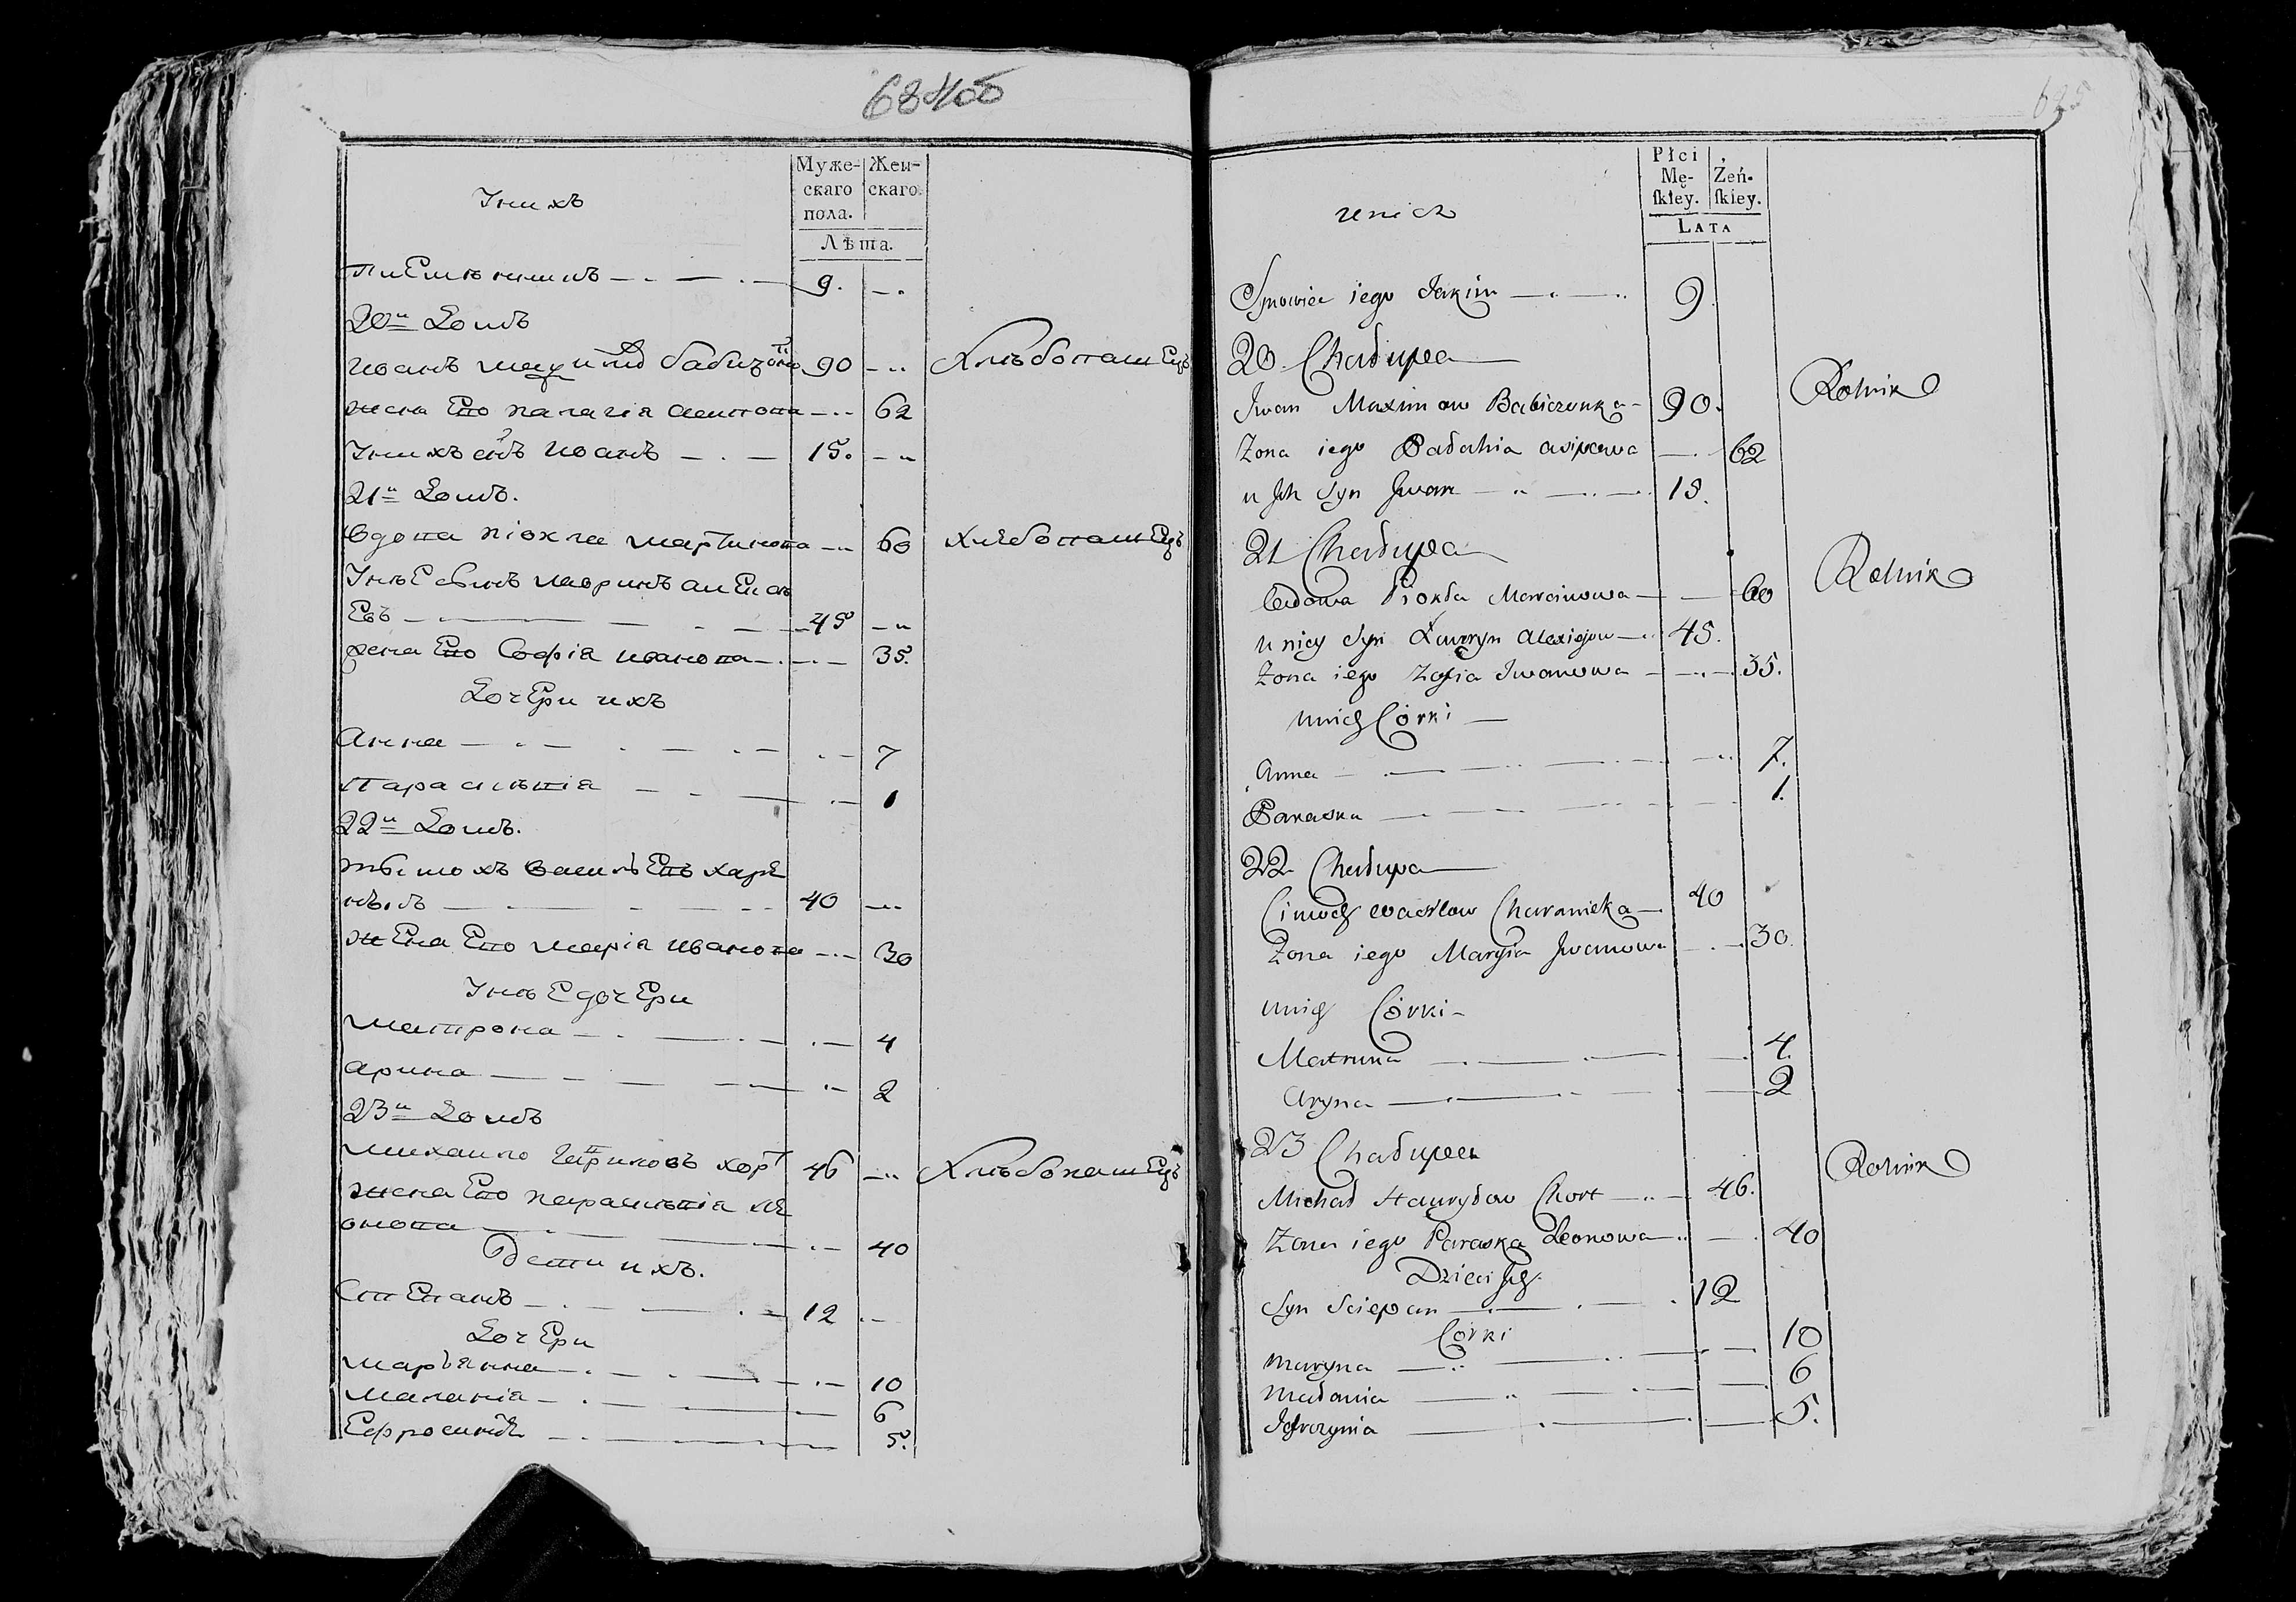 684об
Муже- Жен-
скаго скаго.
пола.
Лѣта.
У нихъ
9. — .
20й Домъ
Иванъ Мазимовъ Бабичонко 90 — .. Хлѣбопашецъ
жена Его палагія — .. 62
У нихъ сынъ Иванъ — . — 15. — ..
21й Домъ.
Вдова піокла мартинова — .. 60 Хлебопашецъ
У нѣе сынъ лаоринъ алексѣ
Евъ — 45 — ..
жена Его Софія иванова — . — 35.
Дочери ихъ
Анна — . — . — . — 7
Параскѣвія — . — 1
22й Домъ.
василѣвъ харе
— 40 — ..
жена Его марія иванова — .. 30
У нѣе дочери
матрона — . — 4
арина — — 2
23й Домъ
михаило гаприловъ хорт 46 — .. Хлѣбопашецъ
жена Его параскѣвія ле
онова — 40
Дети ихъ.
Степанъ — . — 12 . —
Дочери
маръянна — . — 10
маланія — . — 6
Ефросинія — 5.
685
Płci
Mę- Żeń-
ſkiey. ſkiey.
LATA
u nich
Synowiec iego Jakim — 9.
20 Chałupa
Iwan Maximow Babiczonka — 90. Rolnik
Żona iego Pałahia asipowa — 62
u Jch Syn Jwan — 15.
21 Chałupa
wdowa Piokła Marcinowa — 60 Rolnik
u niey Syn Ławryn Alexiejow — 45.
Żona iego Zofia Iwanowa — 35.
u nich Córki —
Anna — 7.
Paraska — 1.
22 Chałupa
Cimoch wasilow Charanieka — 40
Żona iego Maryia Jwanowa — 30.
u nich Córki —
Matruna — 4.
Aryna — 2
23 Chałupa
Michał Hawryłow Chort — 46. Rolnik
Żona iego Paraska Leonowa — 40
Dzieci Jch.
Syn Sciepan — 12
Córki
Maryna — 10
Małania — 6
Jefrozynia — 5.